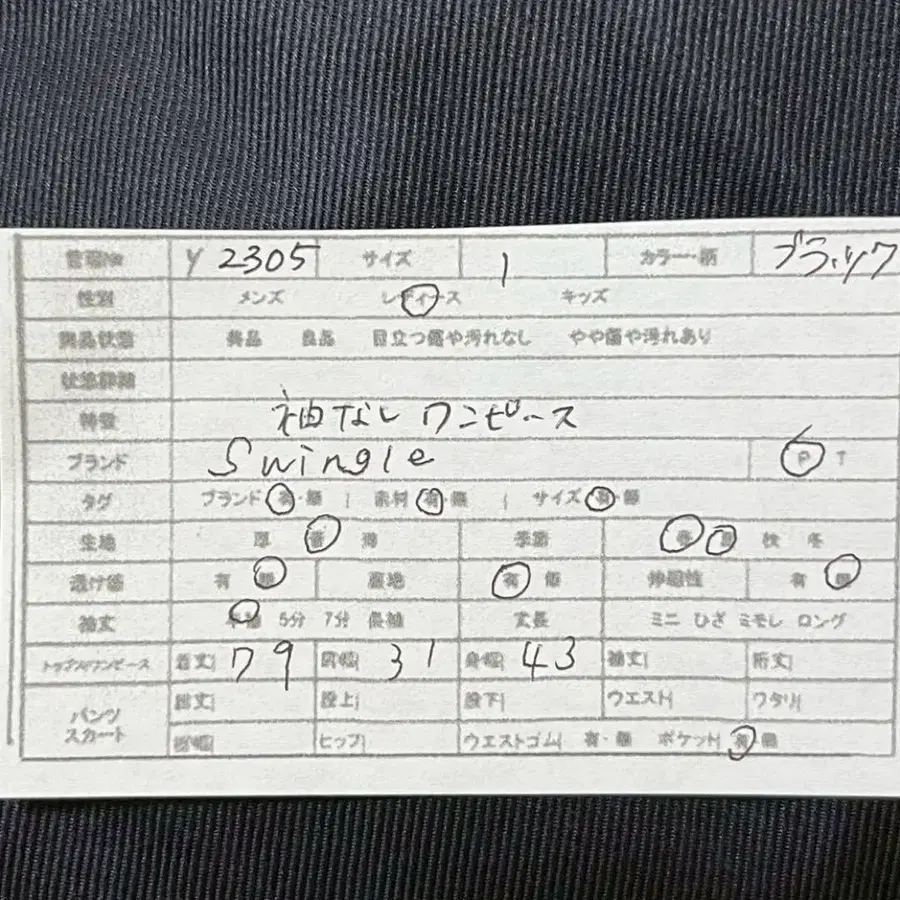 管理No Y 2305 サイズ 1 カラー・柄 ブラック
性別 メンズ レディース キッズ
商品状態 美品 良品 目立つ傷や汚れなし やや傷や汚れあり
状態詳細
特徴 袖なしワンピース
ブランド Swingle P T
タグ ブランド 有・無 | 素材 有・無 | サイズ 有・無
生地 厚 普 薄 季節 春 夏 秋 冬
透け感 有 無 裏地 有 無 伸縮性 有 無
袖丈 半袖 5分 7分 長袖 丈長 ミニ ひざ ミモレ ロング
トップス/ワンピース 着丈| 79 肩幅| 31 身幅| 43 袖丈| 裄丈|
パンツ スカート 総丈| 股上| 股下| ウエスト| ワタリ|
裾幅| ヒップ| ウエストゴム| 有・無 ポケット| 有 無